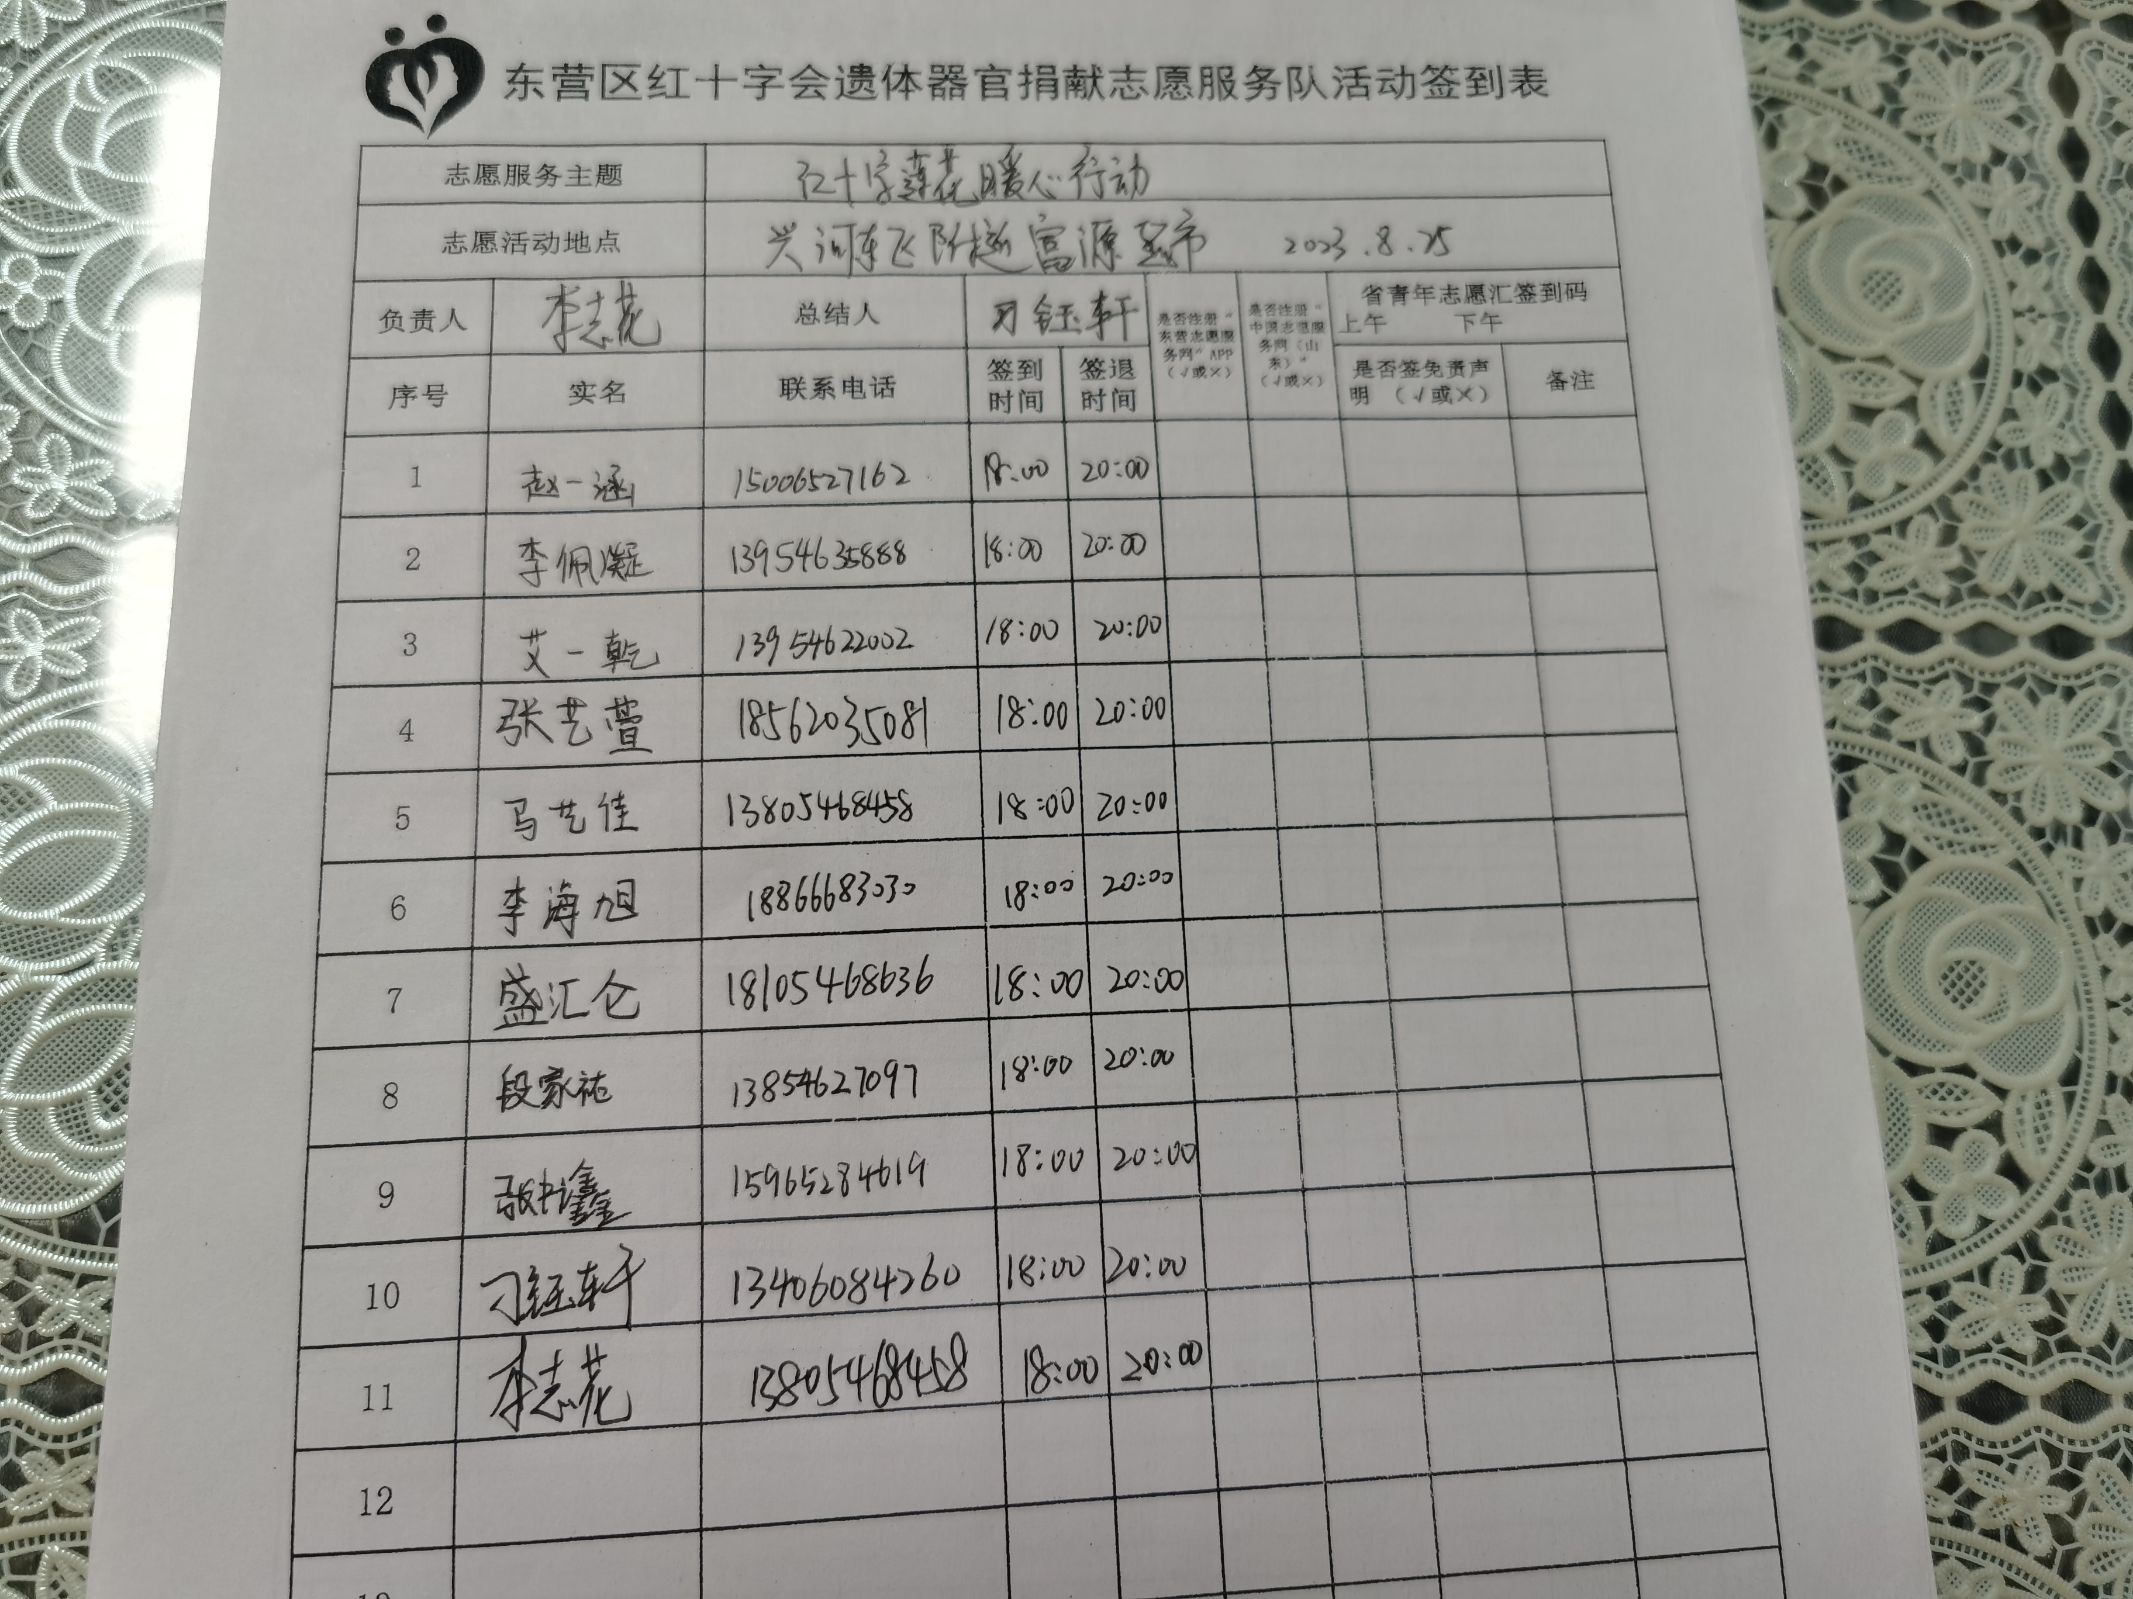 东营区红十字会遗体器官捐献志愿服务队活动签到表
志愿服务主题 红十字莲花暖心行动
志愿活动地点 富源 2023.8.25
负责人 李志花 总结人 刁钰轩 是否注册“东营志愿服务网”APP（√或×） 是否注册“中国志愿服务网（山东）”（√或×） 省青年志愿汇签到码 上午 下午
序号 实名 联系电话 签到时间 签退时间 是否签免责声明（√或×） 备注
1 赵一涵 15006527162 18:00 20:00
2 李佩凝 13954635888 18:00 20:00
3 艾一乾 13954622002 18:00 20:00
4 张艺萱 18562035081 18:00 20:00
5 马艺佳 13805468458 18:00 20:00
6 李海旭 18866683030 18:00 20:00
7 盛汇仑 18105468636 18:00 20:00
8 段家祐 13854627097 18:00 20:00
9 鑫 15965284619 18:00 20:00
10 刁钰轩 13406084260 18:00 20:00
11 李志花 13805468458 18:00 20:00
12